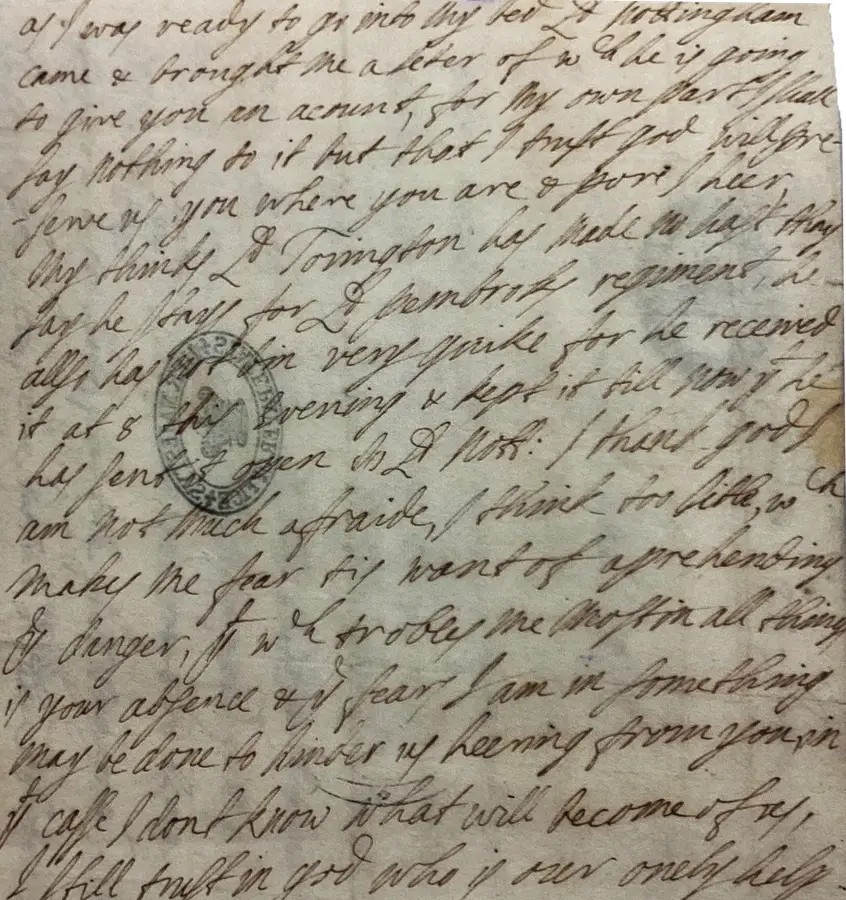 as I was ready to go into my bed Ld Nottingham
came & brought me a leter of wch he is going
to give you an acount, for my own part I shall
say nothing to it but that I trust god will pre-
-serve us you where you are & pore I heer,
my thinks Ld Torington has made no hast they
say he stays for Ld Pembroks regiment, he
allso has not bin very quike for he received
it at 8 this evening & kept it till now yt he
has sent it open to Ld Nott: I thank god I
am not much afraide, I think too litle, wch
makes me fear tis want of aprehending
ye danger, yt wch trobles me most in all things
is your absence & ye fear I am in something
may be done to hinder us heering from you, in
yt casse I dont know what will become of us,
I still trust in god who is our onely help